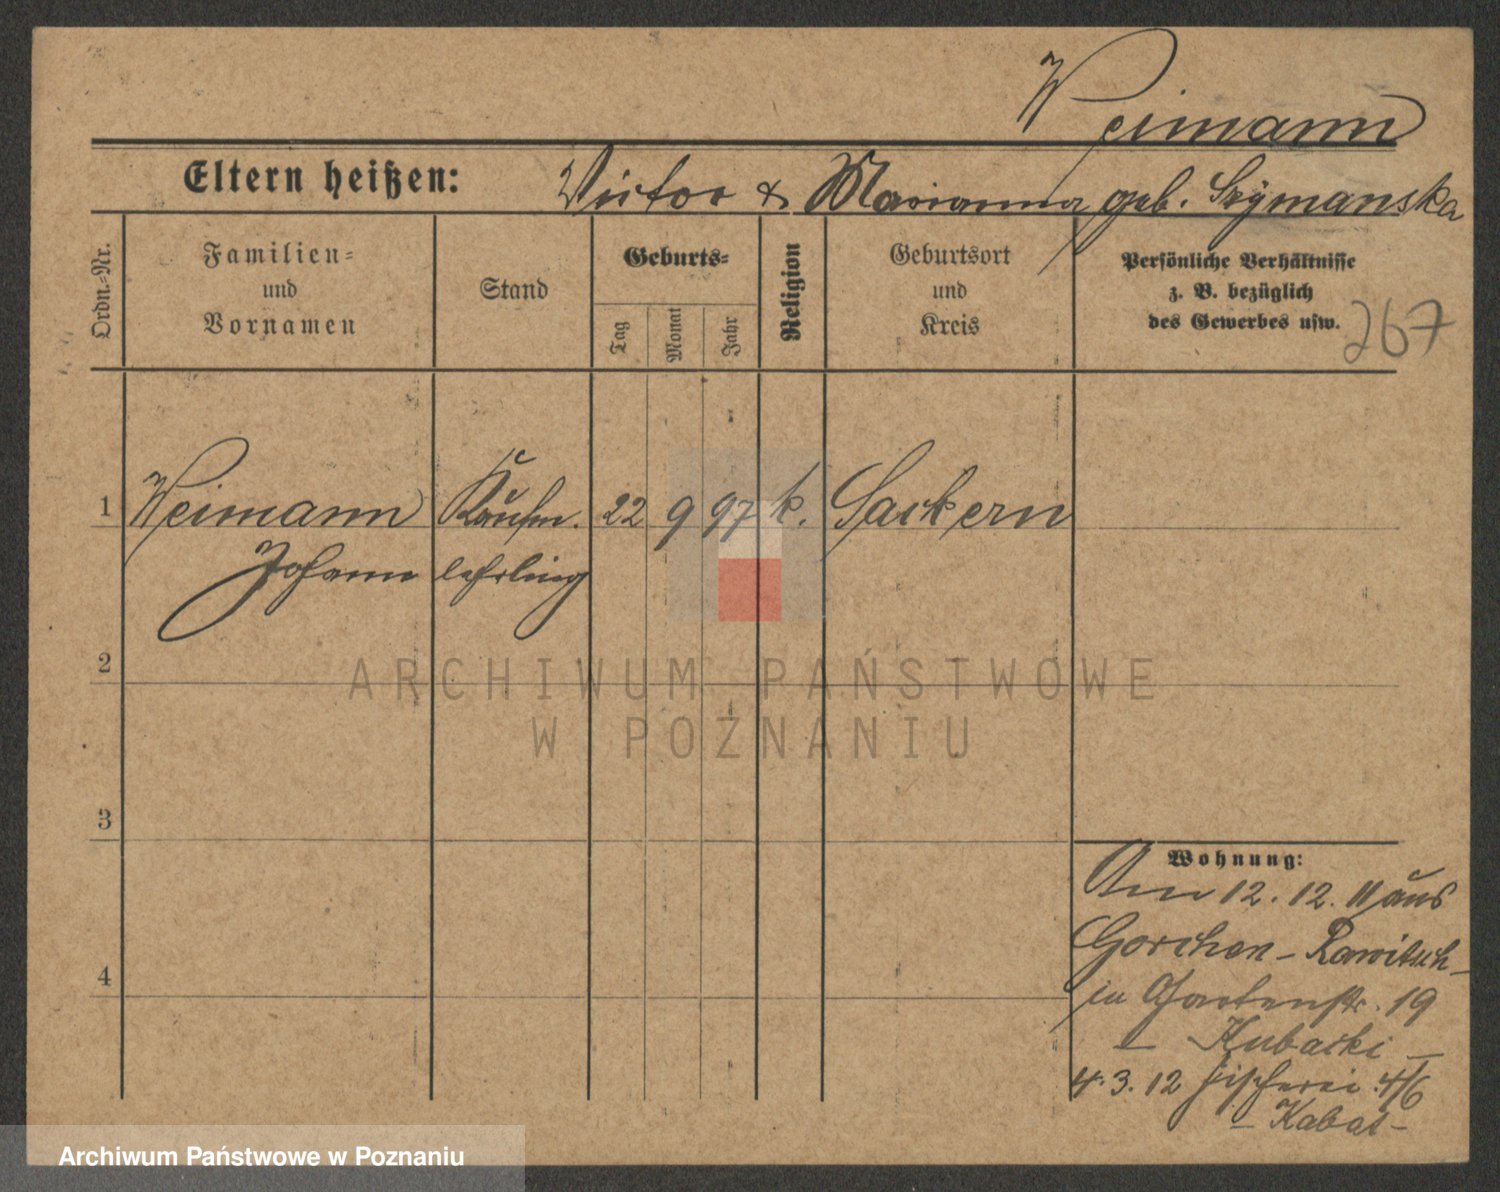 Weimann
Eltern heißen: Victor & Marianna geb. Szÿmanska
Ordn.-Nr.
Familien-
und
Vornamen
Stand
Geburts-
Tag
Monat
Jahr
Religion
Geburtsort
und
Kreis
Persönliche Verhältnisse
z. B. bezüglich
des Gewerbes usw.
267
1 Weimann Kaufm. 22 9 97 k. Sackern
Johann lehrling
2
ARCHIWUM PAŃSTWOWE
W POZNANIU
3
Wohnung:
Am 12. 12. 11 aus
Gorchen - Rawitsch -
in Gartenstr. 19
- Kubacki -
4
4. 3. 12 Fischerei 4/6
- Kabat -
Archiwum Państwowe w Poznaniu